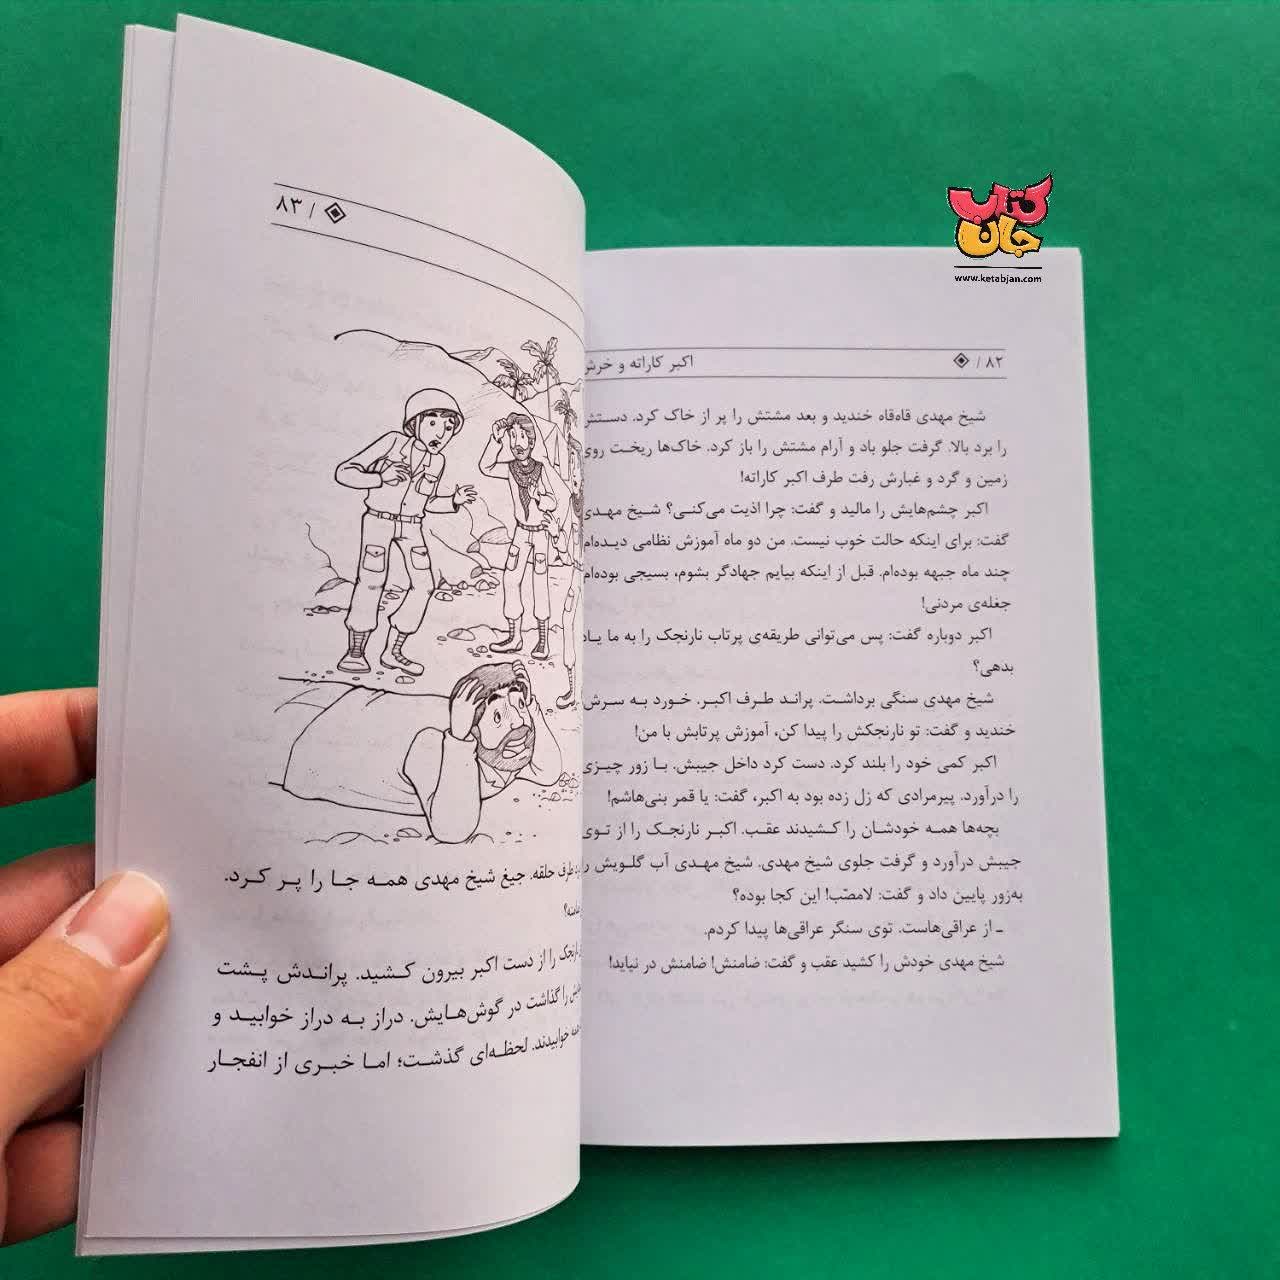 کتاب
جان
www.ketabjan.com
۸۲ /
اکبر کاراته و خرش
شیخ مهدی قاه‌قاه خندید و بعد مشتش را پر از خاک کرد. دستش
را برد بالا. گرفت جلو باد و آرام مشتش را باز کرد. خاک‌ها ریخت روی
زمین و گرد و غبارش رفت طرف اکبر کاراته!
اکبر چشم‌هایش را مالید و گفت: چرا اذیت می‌کنی؟ شیخ مهدی
گفت: برای اینکه حالت خوب نیست. من دو ماه آموزش نظامی دیده‌ام
چند ماه جبهه بوده‌ام. قبل از اینکه بیایم جهادگر بشوم، بسیجی بوده‌ام
جغله‌ی مردنی!
اکبر دوباره گفت: پس می‌توانی طریقه‌ی پرتاب نارنجک را به ما یاد
بدهی؟
شیخ مهدی سنگی برداشت. پراند طرف اکبر. خورد به سرش
خندید و گفت: تو نارنجکش را پیدا کن، آموزش پرتابش با من!
اکبر کمی خود را بلند کرد. دست کرد داخل جیبش. با زور چیزی
را درآورد. پیرمرادی که زل زده بود به اکبر، گفت: یا قمر بنی‌هاشم!
بچه‌ها همه خودشان را کشیدند عقب. اکبر نارنجک را از توی
جیبش درآورد و گرفت جلوی شیخ مهدی. شیخ مهدی آب گلویش ر
به‌زور پایین داد و گفت: لامصّب! این کجا بوده؟
ـ از عراقی‌هاست. توی سنگر عراقی‌ها پیدا کردم.
شیخ مهدی خودش را کشید عقب و گفت: ضامنش! ضامنش در نیاید!
/ ۸۳
طرف حلقه. جیغ شیخ مهدی همه جا را پر کرد.
نارنجک را از دست اکبر بیرون کشید. پراندش پشت
را گذاشت در گوش‌هایش. دراز به دراز خوابید و
خوابیدند. لحظه‌ای گذشت؛ اما خبری از انفجار